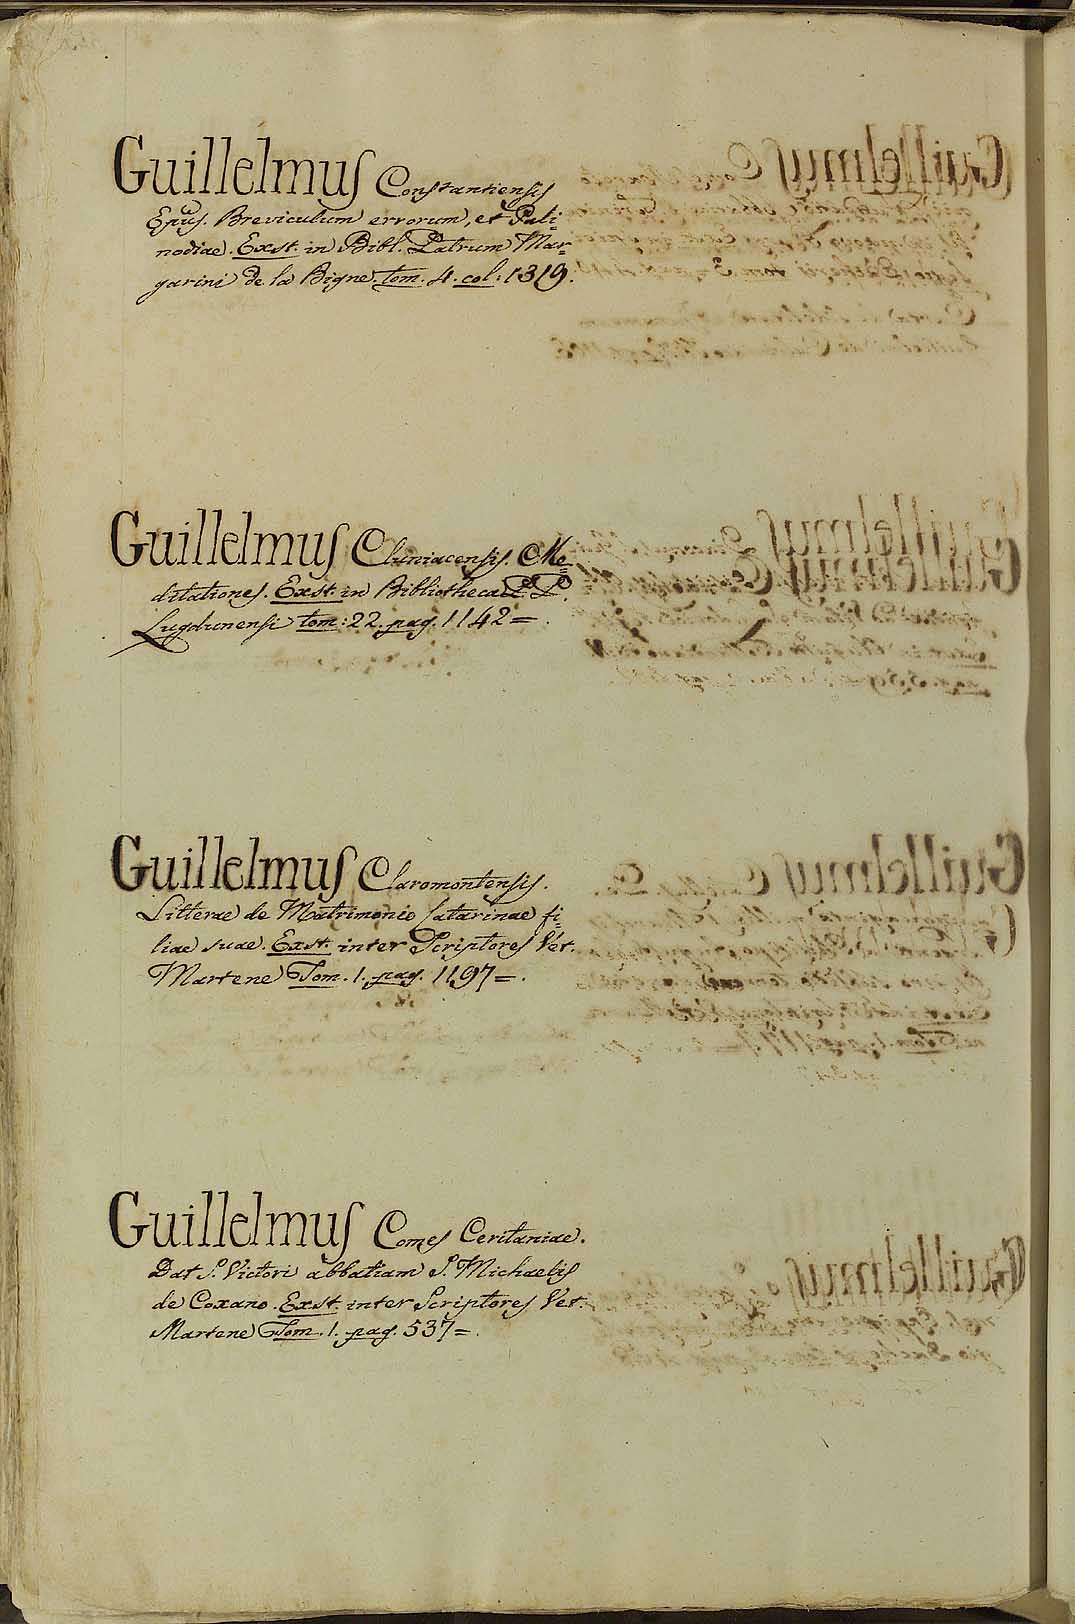 Guillelmus Constantiensis
Epus. Breviculum errorum, et Pali=
nodiae. Exst. in Bibl. Patrum Mar=
garini de la Bigne. tom. 4. col: 1319.
Guillelmus Cluniacensis. Me=
ditationes. Exst. in Bibliotheca P. P.
Lugdunensi tom: 22. pag. 1142=.
Guillelmus Claromontensis.
Litterae de Matrimonio Catarinae fi=
liae suae. Exst. inter Scriptores Vet.
Martene Tom. 1. pag. 1197=.
Guillelmus Comes Ceritaniae.
Dat S. Victori abbatiam S. Michaelis
de Coxano. Exst. inter Scriptores Vet.
Martene Tom. 1. pag. 537=.